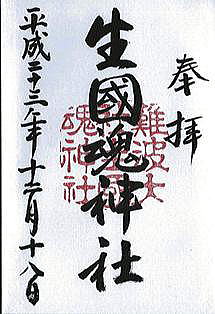 奉拝
生國魂神社
難波大
魂神社
平成二十三年十二月十八日